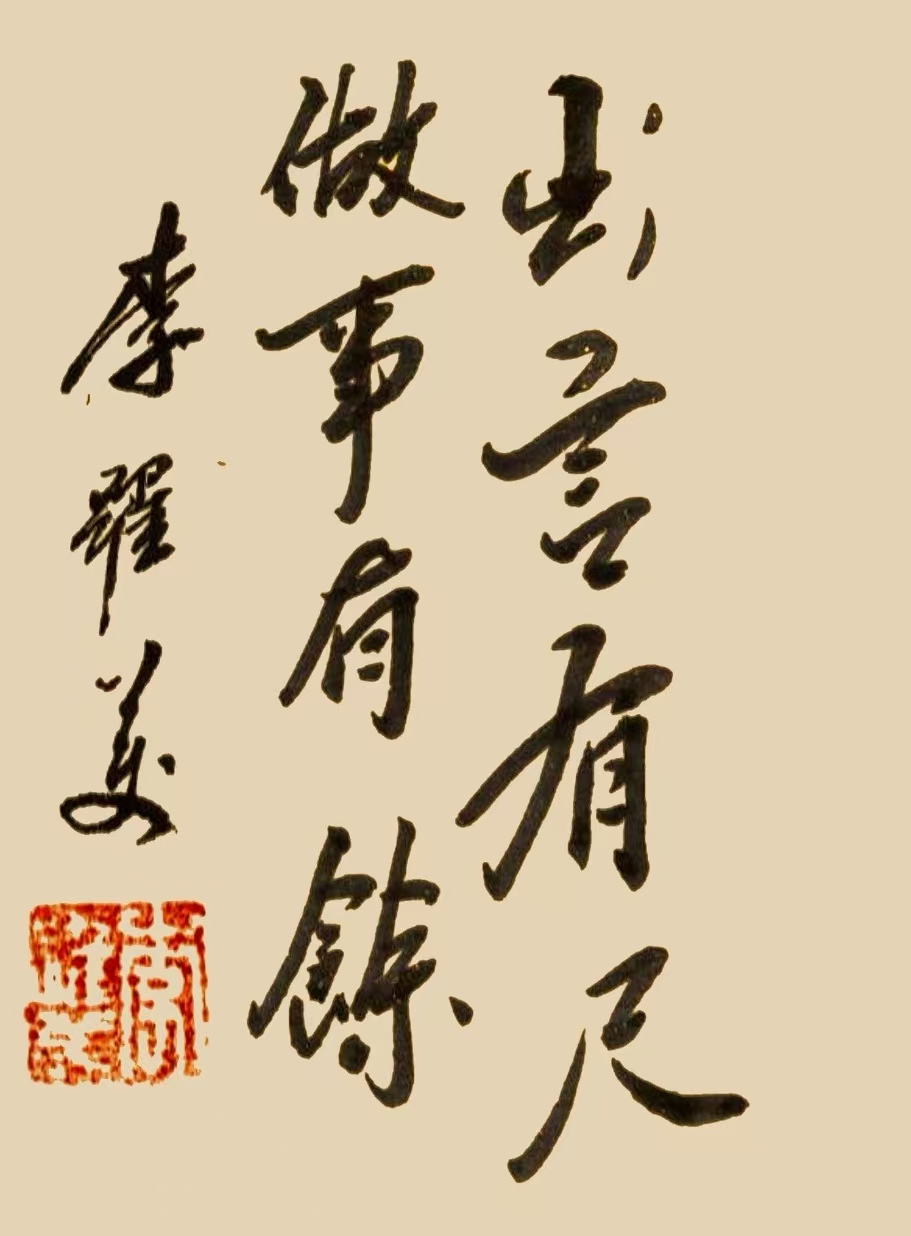 出言有尺
做事有餘
李